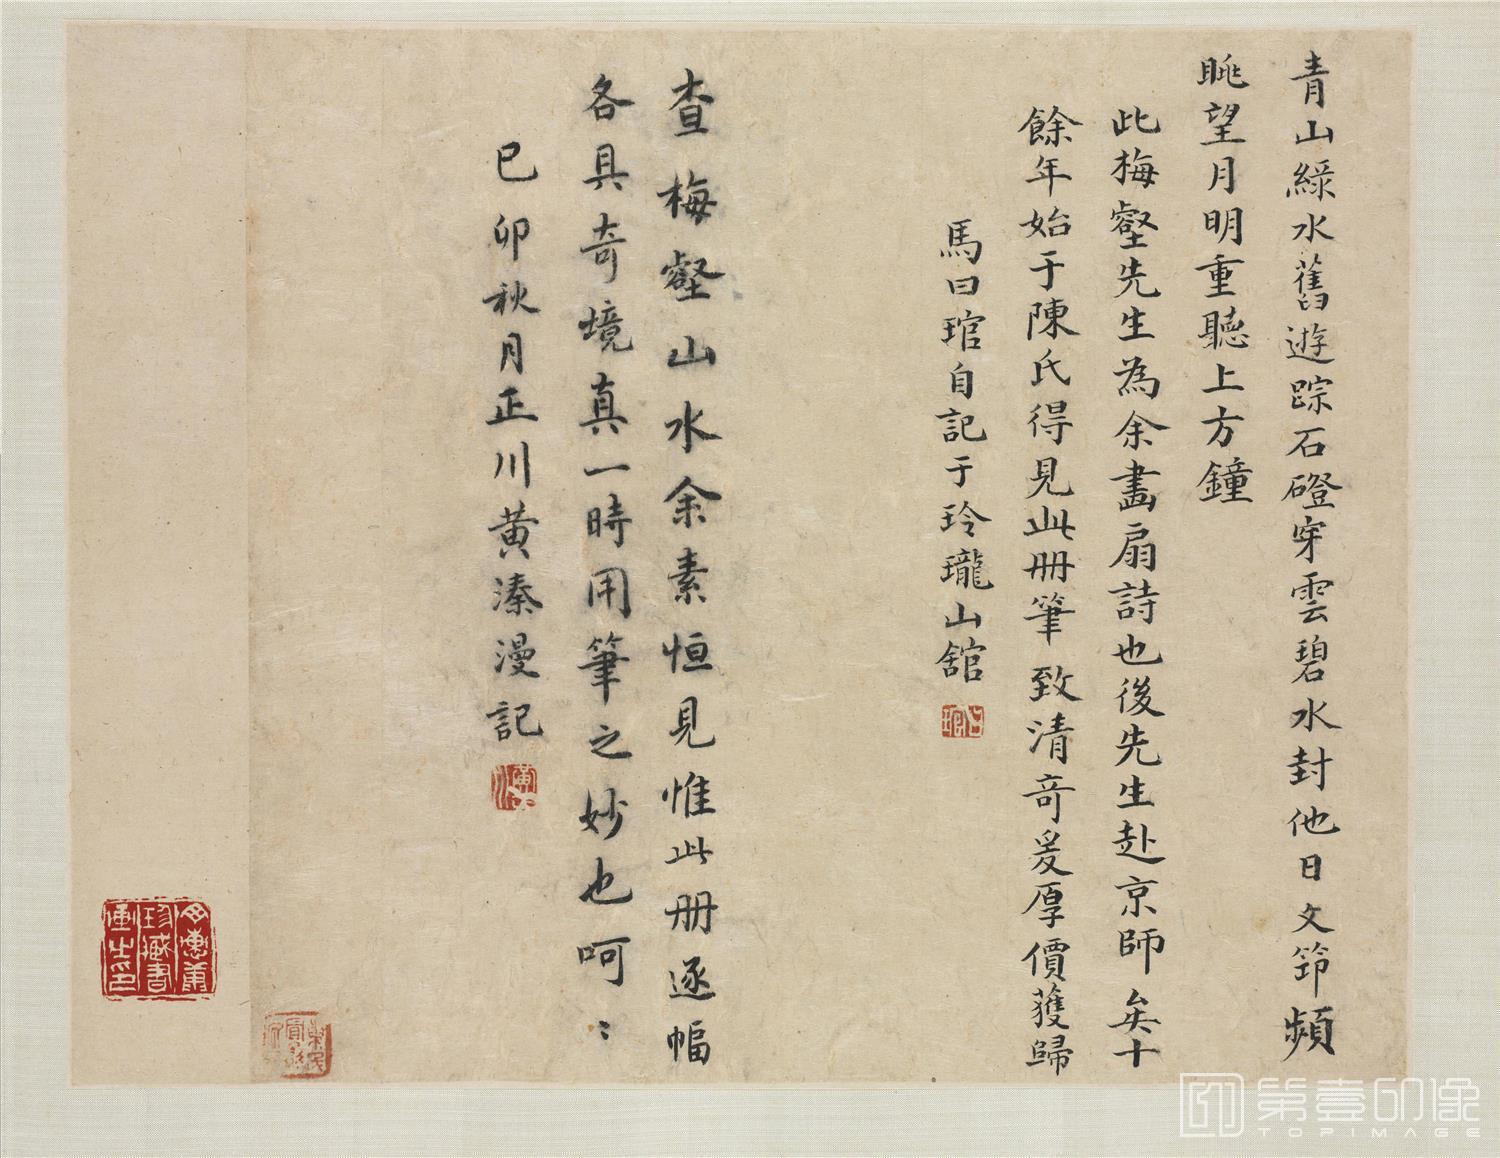 青山綠水舊遊踪石磴穿雲碧水封他日文筇頻
眺望月明重聽上方鐘
此梅壑先生為余畵扇詩也後先生赴京師矣十
餘年始于陳氏得見此册筆致清奇爰厚價獲歸
馬曰琯自記于玲瓏山舘
查梅壑山水余素恒見惟此册逐幅
各具奇境真一時用筆之妙也呵〻
已卯秋月正川黄溱漫記
第壹印像
TOPIMAGE